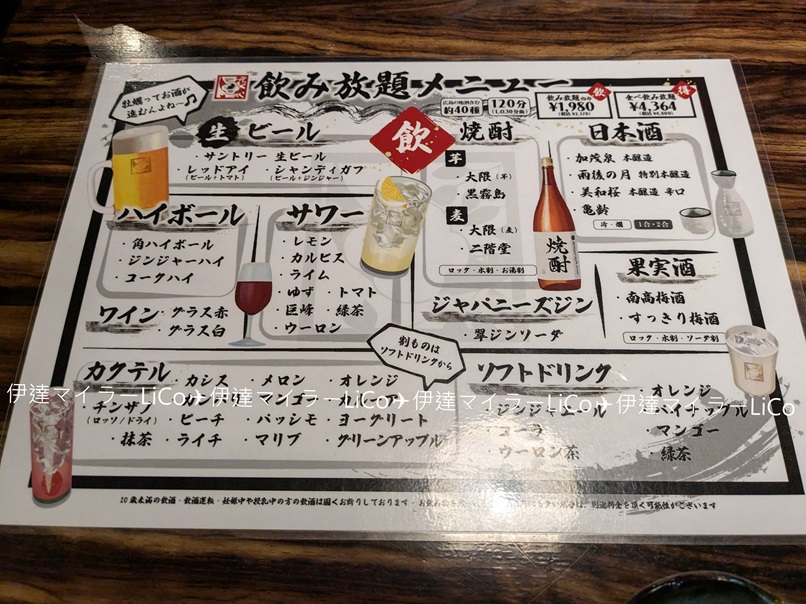 牡蠣ってお酒が
進むんよねー♪
飲み放題メニュー
広島の地酒含む
約40種
120分
飲み放題のみ
¥1,980
飲
食べ飲み放題
¥4,364
得
生ビール
・サントリー 生ビール
・レッドアイ ・シャンディガフ
(ビール+トマト) (ビール+ジンジャー)
飲
焼酎
芋
・大隅(芋)
・黒霧島
麦
・大隅(麦)
・二階堂
ロック・水割・お湯割
焼酎
日本酒
・加茂泉 本醸造
・雨後の月 特別本醸造
・美和桜 本醸造 辛口
・亀齢
冷・燗 1合・2合
ハイボール
・角ハイボール
・ジンジャーハイ
・コークハイ
サワー
・レモン
・カルピス
・ライム
・ゆず ・トマト
・巨峰 ・緑茶
・ウーロン
ワイン
・グラス赤
・グラス白
ジャパニーズジン
・翠ジンソーダ
果実酒
・南高梅酒
・すっきり梅酒
ロック・水割・ソーダ割
割ものは
ソフトドリンクから
カクテル
・カシス ・メロン ・オレンジ
・チンザノ
(ロッソ/ドライ)
・ピーチ ・パッシモ ・ヨーグリート
・抹茶 ・ライチ ・マリブ ・グリーンアップル
ソフトドリンク
・ジンジャーエール
・コーラ
・ウーロン茶
・オレンジ
・パイナップル
・マンゴー
・緑茶
伊達マイラーLiCo✈伊達マイラーLiCo✈伊達マイラーLiCo✈伊達マイラーLiCo
20歳未満の飲酒・飲酒運転・妊娠中や授乳中の方の飲酒は固くお断りしております
別途料金を頂く可能性がございます